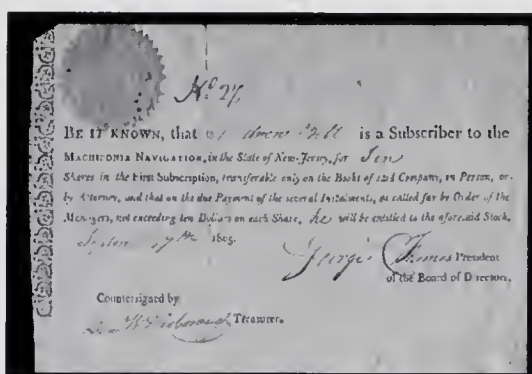 No 27.
BE IT KNOWN, that is a Subscriber to the
MACHIPONIA NAVIGATION, in the State of New-Jersey, for Ten
Shares in the First Subscription, transferable only on the Books of said Company, in Person, or
by Attorney, and that on the due Payment of the several Instalments, as called for by Order of the
Managers, not exceeding ten Dollars on each Share, he will be entitled to the aforesaid Stock.
Septem 17th 1805.
George President
of the Board of Directors.
Countersigned by
Treasurer.